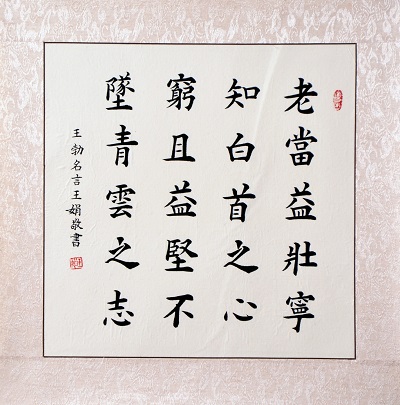 老當益壯寧
知白首之心
窮且益堅不
墜青雲之志
王勃名言王娟敬書